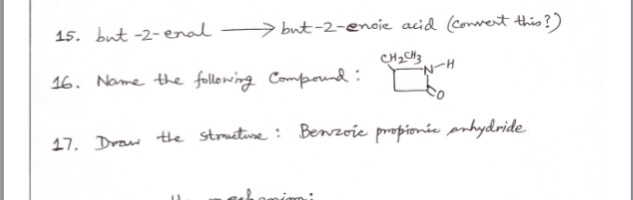 15. but-2-enal → but-2-enoic acid (convert this?)
CH2CH3
N-H
16. Name the following Compound:
O
17. Draw the structure: Benzoic propionic anhydride